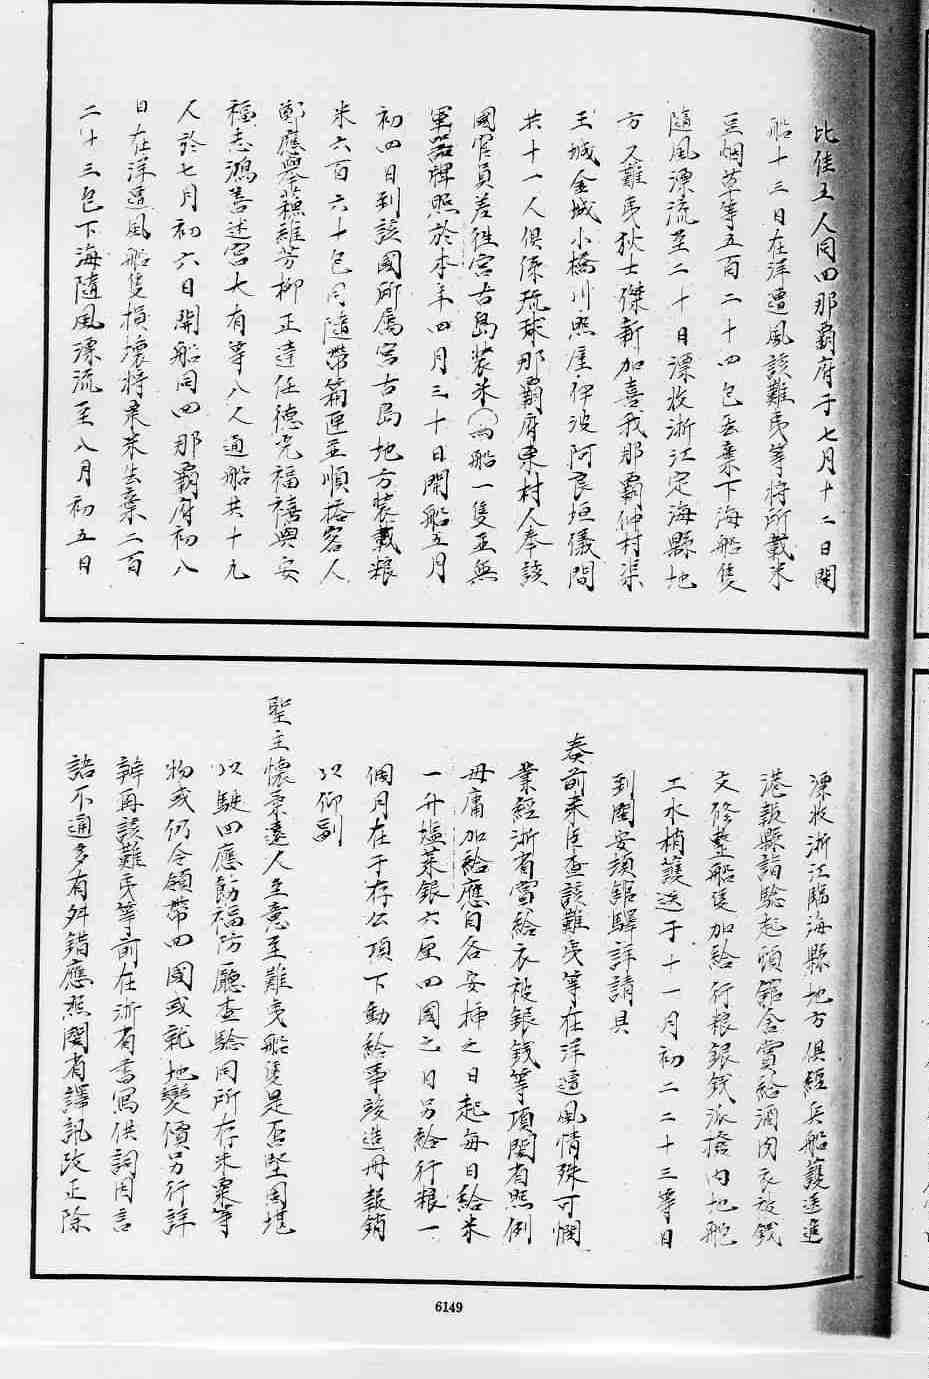 比佳五人同四那霸府于七月十二日開
船十三日在洋遭風該難夷等將所載米
豆烟草等五百二十四包丟棄下海船隻
隨風漂流至二十日漂收浙江定海縣地
方又難夷狄士傑新加喜我那霸仲村渠
玉城金城小橋川照屋伊波阿良垣儀間
共十一人俱係琉球那霸府東村人奉該
國官員差徃宮古島装米(兩船一隻並無
軍器牌照於本年四月三十日開船五月
初四日到該國所属宮古島地方装載粮
米六百六十包同隨帶篇匣並順搭客人
鄭應舉蘇維芳柳正達任德光福禧與安
福志鴻善述宮大有等八人通船共十九
人於七月初六日開船同四那霸府初八
日在洋遭風船隻損壞將桼米丟棄二百
二十三包下海隨風漂流至八月初五日
漂收浙江臨海縣地方俱經兵船護送進
港報縣詣驗起頭舘舍賞給酒肉衣被錢
文修整船隻加給行粮銀錢派撥内地舵
工水梢護送于十一月初二二十三等日
到閩安頭舘驛詳請具
奏前来臣查該難夷等在洋遭風情殊可憫
業經浙省賞給衣被銀錢等項閩省照例
毋庸加給應自各安揷之日起每日給米
一升塩菜銀六厘四國之日另給行粮一
個月在于存公項下動給事竣造冊報銷
以仰副
聖主懷柔遠人至意至難夷船隻是否堅固堪
以駛四應飭福防廳查驗同所存米粟等
物或仍令領帶四國或就地變價另行詳
辦再該難夷等前在浙省書寫供詞因言
語不通多有舛錯應照閩省譯訊改正除
6149